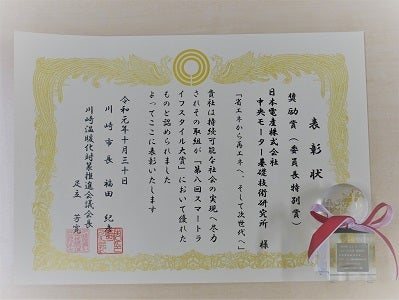 表彰状
奨励賞(委員長特別賞)
日本電産株式会社
中央モーター基礎技術研究所 様
「省エネから再エネへ、そして次世代へ」
貴社は持続可能な社会の実現へ尽力
されその取組が「第八回スマートラ
イフスタイル大賞」において優れた
ものと認められました
よってここに表彰いたします
令和元年十月三十日
川崎市長 福田 紀彦
川崎温暖化対策推進会議会長
足立 芳寛